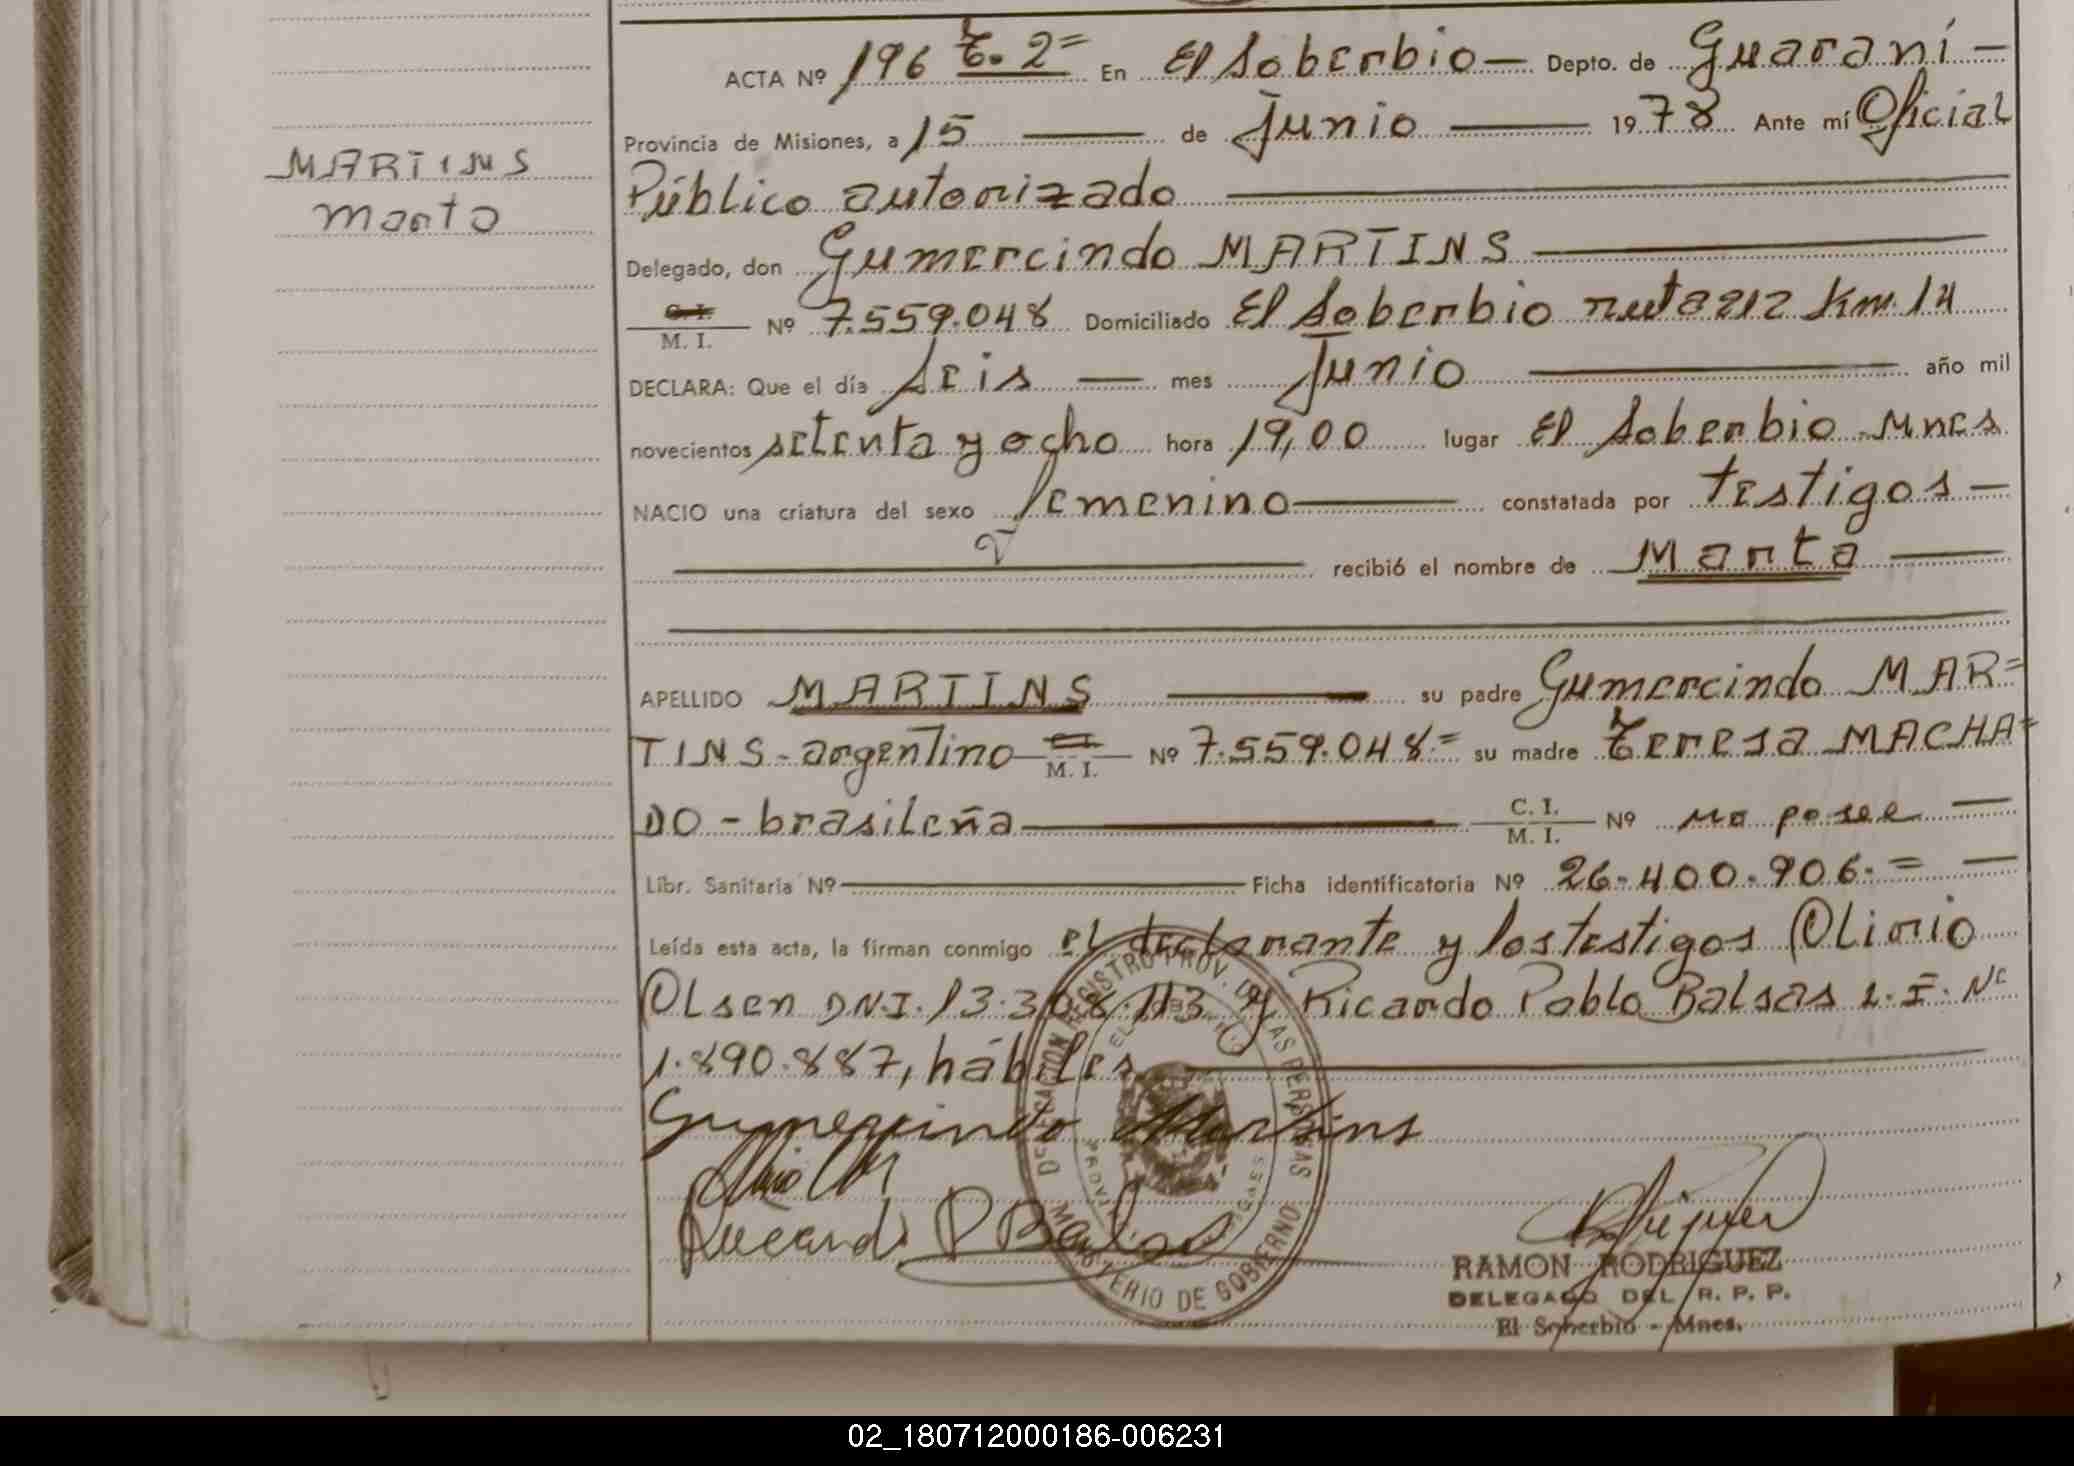 MARTINS
Marta
ACTA Nº 196 T. 2= En El Soberbio — Depto. de Guaraní —
Provincia de Misiones, a 15 — de Junio — 1978 Ante mí Oficial
Público autorizado
Delegado, don Gumercindo MARTINS
C. I. / M. I. Nº 7.559.048 Domiciliado El Soberbio ruta 212 Km. 14
DECLARA: Que el día seis — mes Junio — año mil
novecientos setenta y ocho hora 19,00 lugar El Soberbio Mnes
NACIO una criatura del sexo femenino — constatada por testigos —
recibió el nombre de Marta —
APELLIDO MARTINS — su padre Gumercindo MAR=
TINS - argentino — C. I. / M. I. Nº 7.559.048.= su madre Teresa MACHA=
DO - brasileña — C. I. / M. I. Nº no posee —
Libr. Sanitaria Nº — Ficha identificatoria Nº 26.400.906.= —
Leída esta acta, la firman conmigo el declarante y los testigos Olirio
Olsen D.N.I. 13.308.113 y Ricardo Pablo Balsas L.E. Nº
1.890.887, hábiles
Gumercindo Martins
Ricardo P Balsas
DELEGACION REGISTRO PROV. DE LAS PERSONAS
MINISTERIO DE GOBIERNO
RAMON RODRIGUEZ
DELEGADO DEL R. P. P.
El Soberbio - Mnes.
02_180712000186-006231